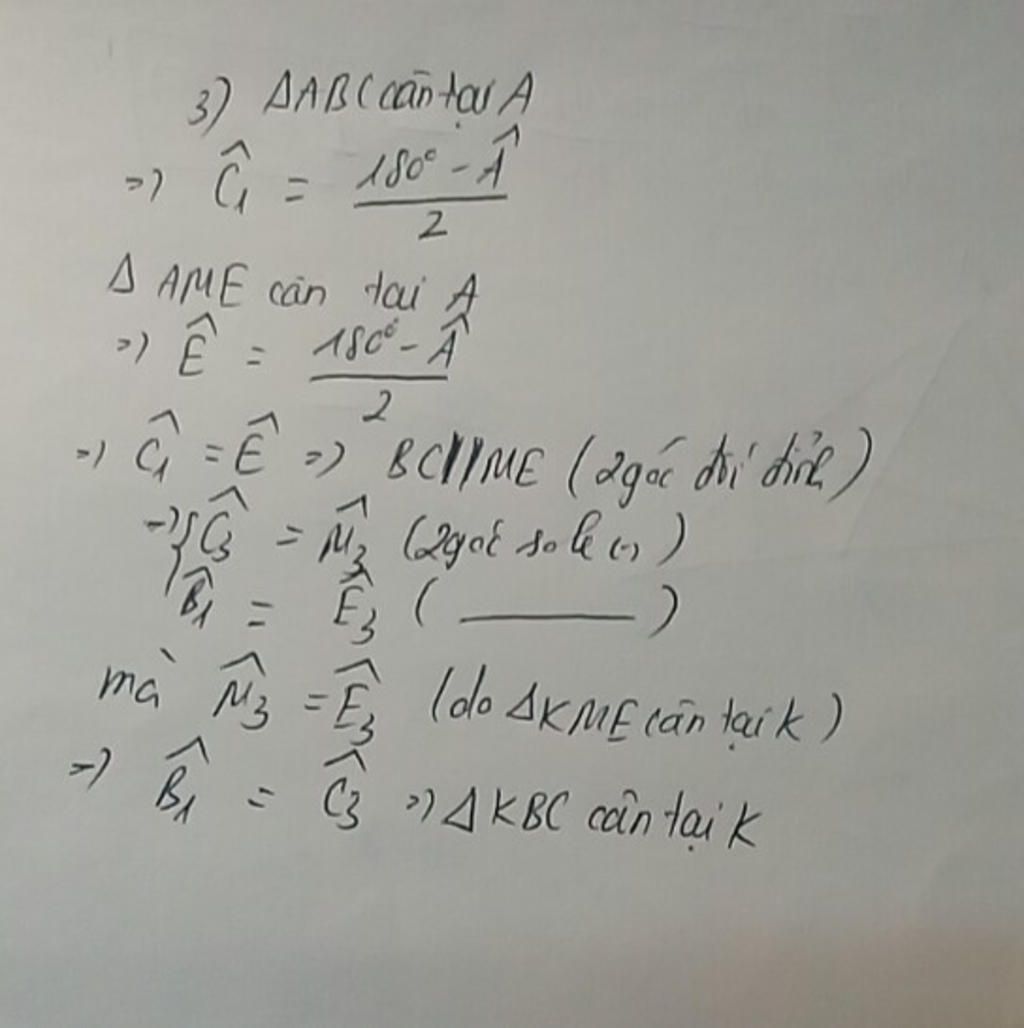 3) ΔABC cân tại A
=> Ĉ₁ = (180° - Â)/2
Δ AME cân tai A
=> Ê = (180° - Â)/2
=> Ĉ₁ = Ê => BC // ME (2góc đối đỉnh)
=> { Ĉ₃ = M̂₃ (2góc so le (-))
B̂₁ = Ê₃ ( ——— )
mà M̂₃ = Ê₃ (do ΔKME cân tại K)
=> B̂₁ = Ĉ₃ => Δ KBC cân tại K